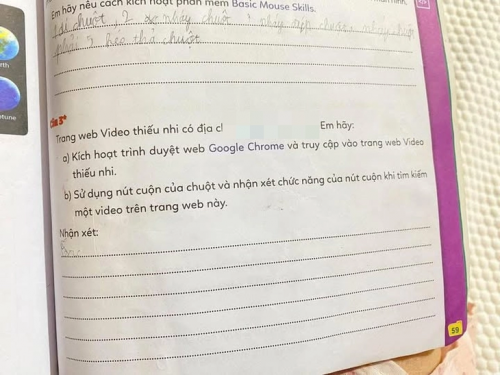 Em hãy nêu cách kích hoạt phần mềm Basic Mouse Skills.
chuột 2 nháy chuột nháy chuột
phải 5 kéo thả chuột
rth
ptune
Câu 3*
Trang web Video thiếu nhi có địa c Em hãy:
a) Kích hoạt trình duyệt web Google Chrome và truy cập vào trang web Video
thiếu nhi.
b) Sử dụng nút cuộn của chuột và nhận xét chức năng của nút cuộn khi tìm kiếm
một video trên trang web này.
Nhận xét:
59